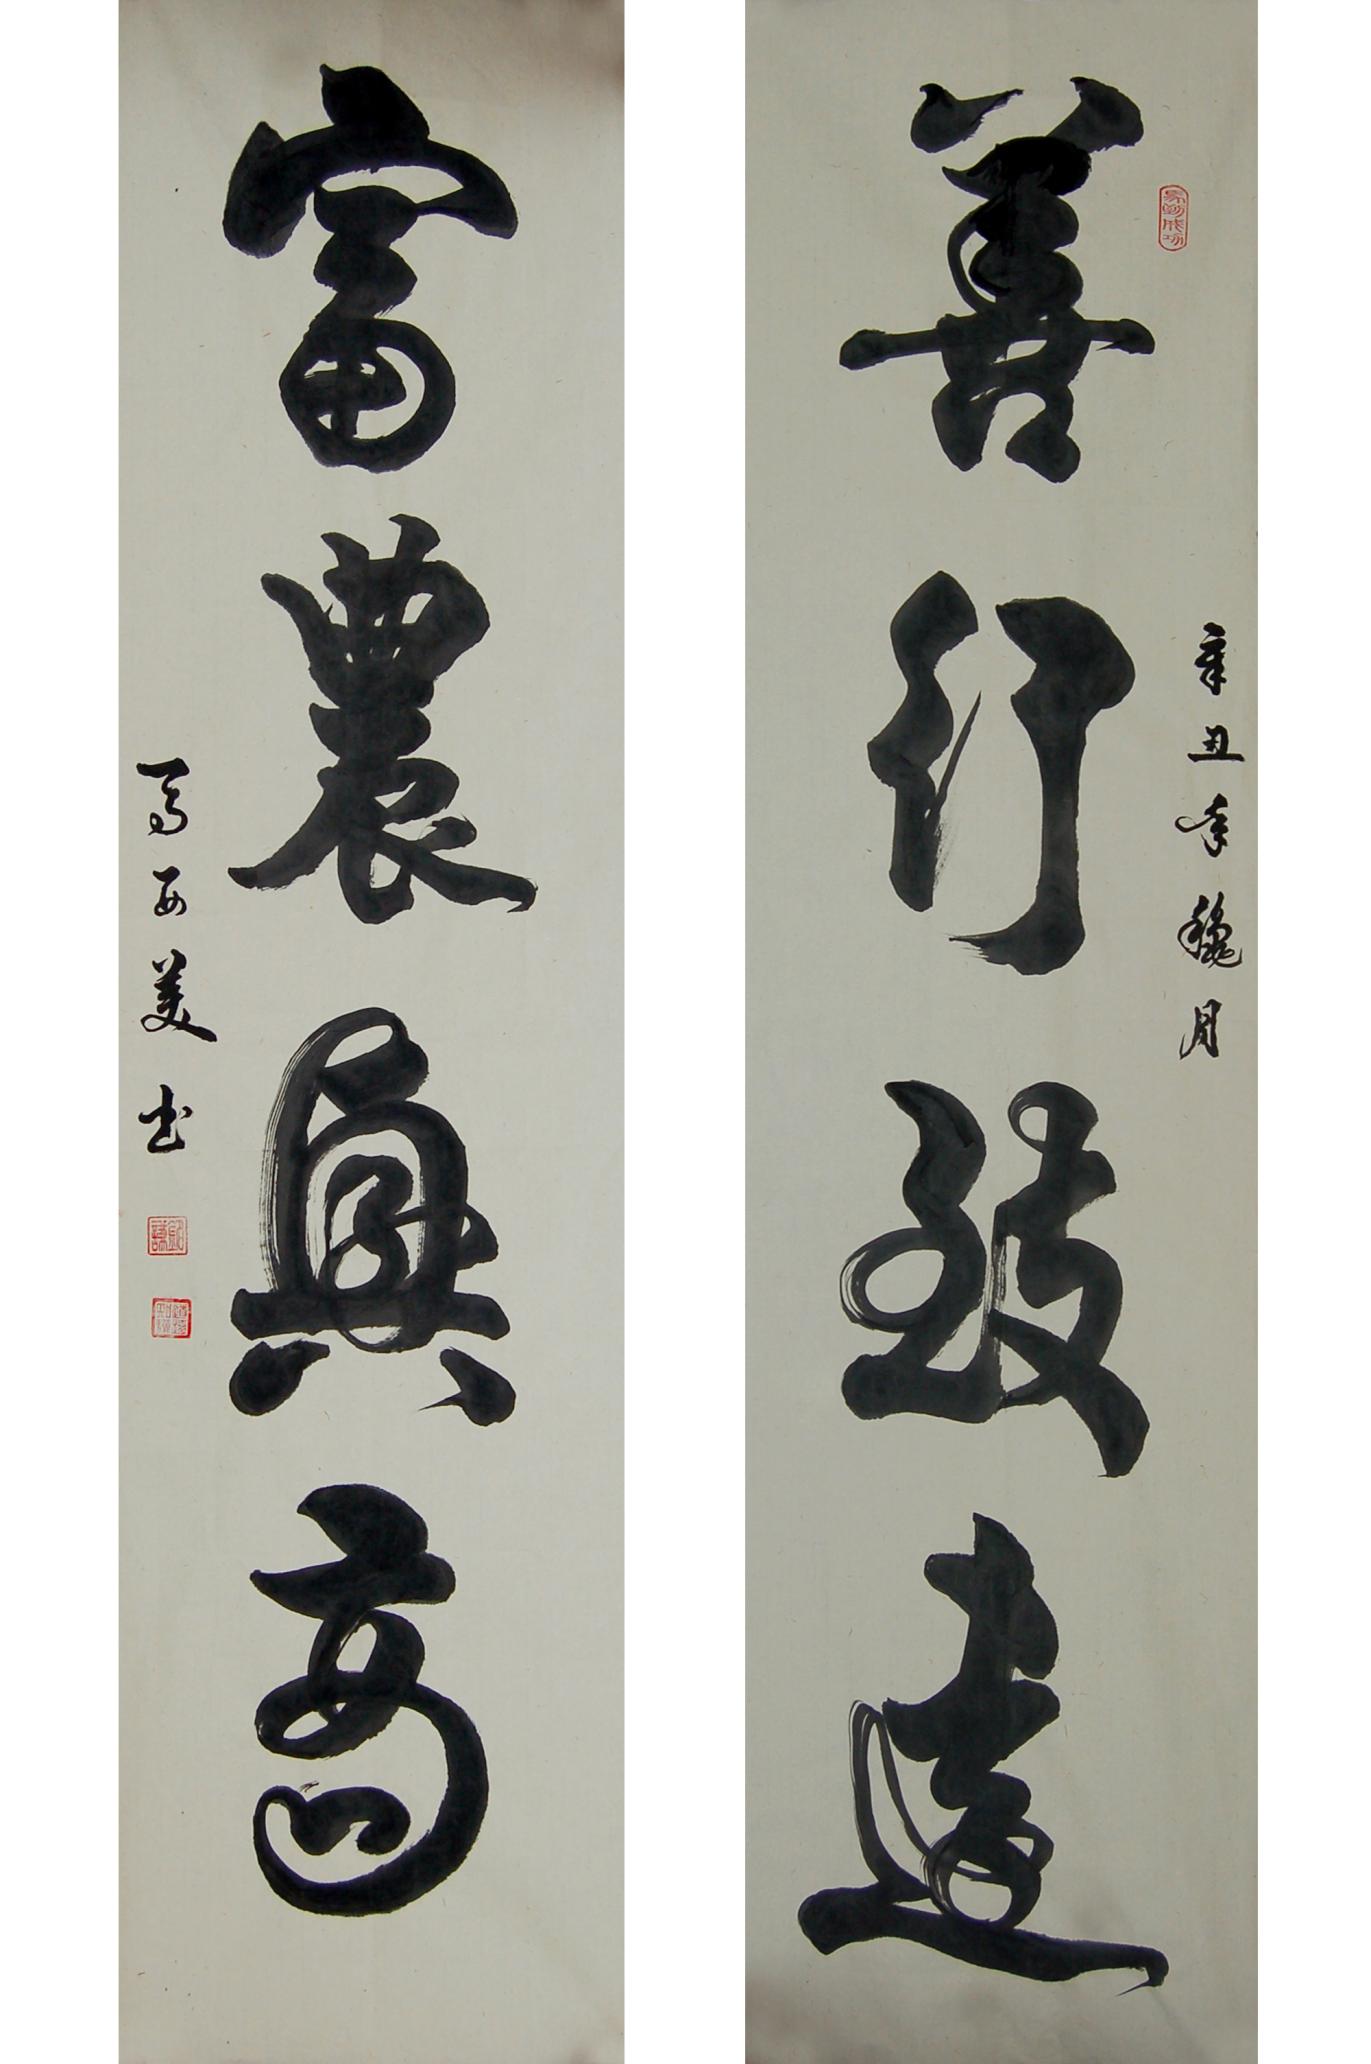 善行致遠
辛丑年穐月
富農興高
西美書